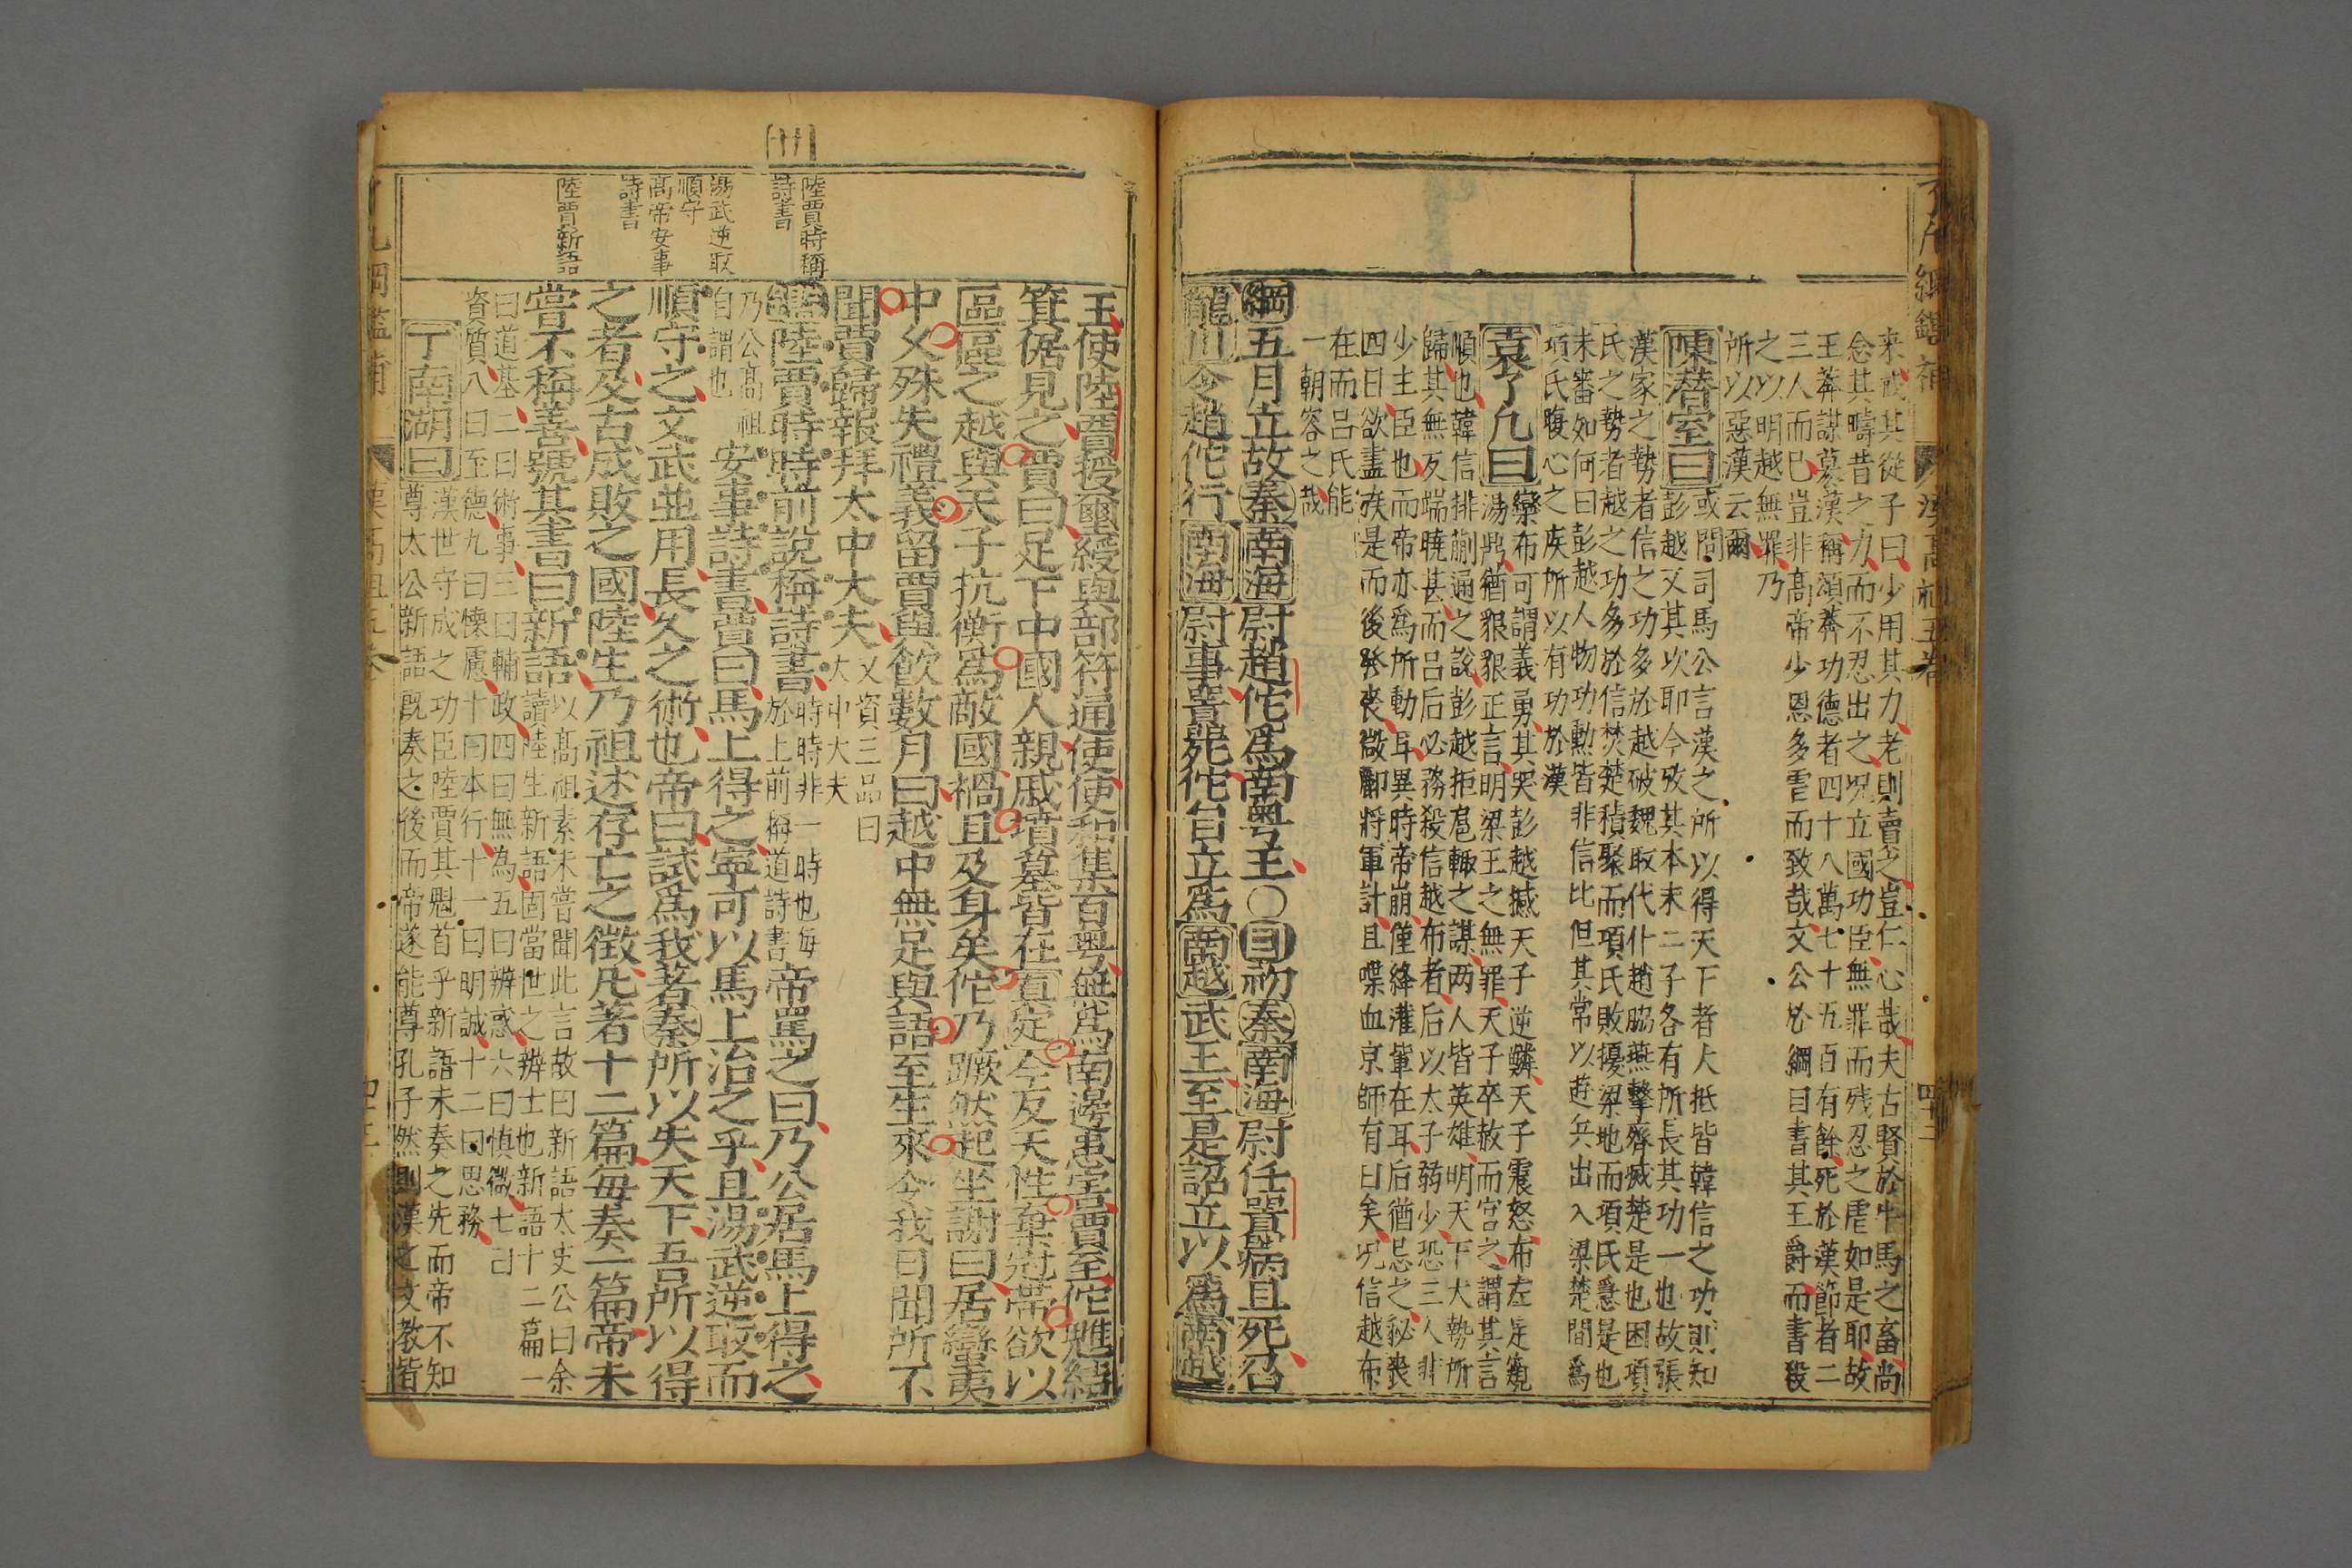 来哉其從子曰少用其力老則賣之豈仁心哉夫古賢於牛馬之畜尚
念其疇昔之力而不忍出之况立國功臣無罪而残忍之虐如是耶故
王莽謀篡漢稱頌莽功德者四十八萬七十五百有餘死於漢節者二
三人而已豈非髙帝少恩多寉而致哉文公於綱目書其王爵而書殺
之以明越無罪乃
所以惡漢云爾
陳潜室曰
或問司馬公言漢之所以得天下者大抵皆韓信之功則知
彭越又其次耶今攷其本末二子各有所長其功一也故張
漢家之勢者信之功多於越破魏取代仆趙脇燕擊齊滅楚是也困項
氏之勢者越之功多於信焚楚積聚而項氏敗擾梁地而項氏急是也
未審如何曰彭越人物功勲皆非信比但其常以逰兵出入梁楚間爲
項氏腹心之疾所以有功於漢
袁了凡曰
欒布可謂義勇其哭彭越撼天子逆鱗天子震怒布左足窺
湯鼎猶狠狠正言明梁王之無罪天子卒赦而宫之謂其言
順也韓信排蒯通之説彭越拒扈輙之謀两人皆英雄明天下大勢所
歸其無反端曉甚而吕后必務殺信越布者后以太子弱少恐三人非
少主臣也而帝亦爲所動耳異時帝崩僅絳灌輩在耳后猶忌之秘丧
四日欲盡族是而後發丧微酈將軍計且喋血京師有日矣况信越布
在而吕氏能
一朝容之哉
綱五月立故秦南海尉趙佗爲南粤王〇目初秦南海尉任嚣病且死召
龍川令趙佗行南海尉事嚣死佗自立爲南越武王至是詔立以爲南越
王使陸賈授璽綬與部符通使使和集百粤無爲南邊患害賈至佗魋結
箕倨見之賈曰足下中國人親戚墳墓皆在真定今反天性棄冠帶欲以
區區之越與天子抗衡爲敵國禍且及身矣佗乃蹶然起坐謝曰居蠻夷
中乆殊失禮義留賈與飲數月曰越中無足與語至生來令我日聞所不
聞賈歸報拜太中大夫
又資三品曰
大中大夫
鑑陸賈時時前説稱詩書
時時非一時也毎
於上前稱道詩書
帝罵之曰乃公居馬上得之
乃公髙祖
自謂也
安事詩書賈曰馬上得之寧可以馬上治之乎且湯武逆取而
順守之文武並用長乆之術也帝曰試爲我著秦所以失天下吾所以得
之者及古成敗之國陸生乃祖述存亡之徵凡著十二篇毎奏一篇帝未
嘗不稱善號其書曰新語
以髙祖素未嘗聞此言故曰新語太史公曰余
讀陸生新語固當世之辨士也新語十二篇一
曰道基二曰術事三曰輔政四曰無為五曰辨惑六曰慎微七曰
資質八曰至德九曰懷慮十曰本行十一曰明誠十二曰思務
丁南湖曰
漢世守成之功臣陸賈其魁首乎新語未奏之先而帝不知
尊太公新語既奏之後而帝遂能尊孔子然則漢之文教皆
陸賈時稱
詩書
湯武逆取
順守
髙帝安事
詩書
陸賈新語